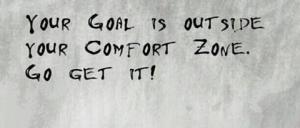 Your Goal is outside
your Comfort Zone.
Go get it!